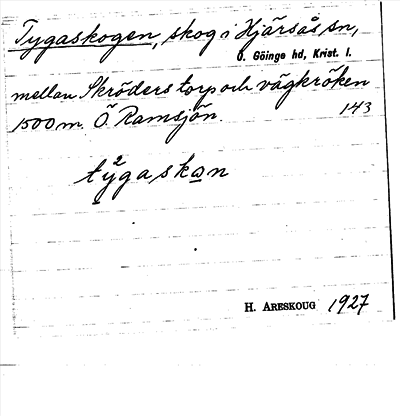 Tygaskogen, skog i Hjärsås sn,
Ö. Göinge hd, Krist. l.
mellan Skröders torp och vägkröken
1500 m. Ö. Ramsjön. 143
tỳgaskọn
H. ARESKOUG 1927